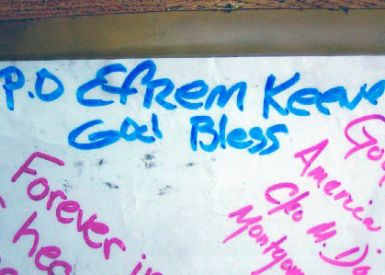 P.O Efrem Keeve
God Bless
Forever in
God
America
Cpo M. Da
Montgom